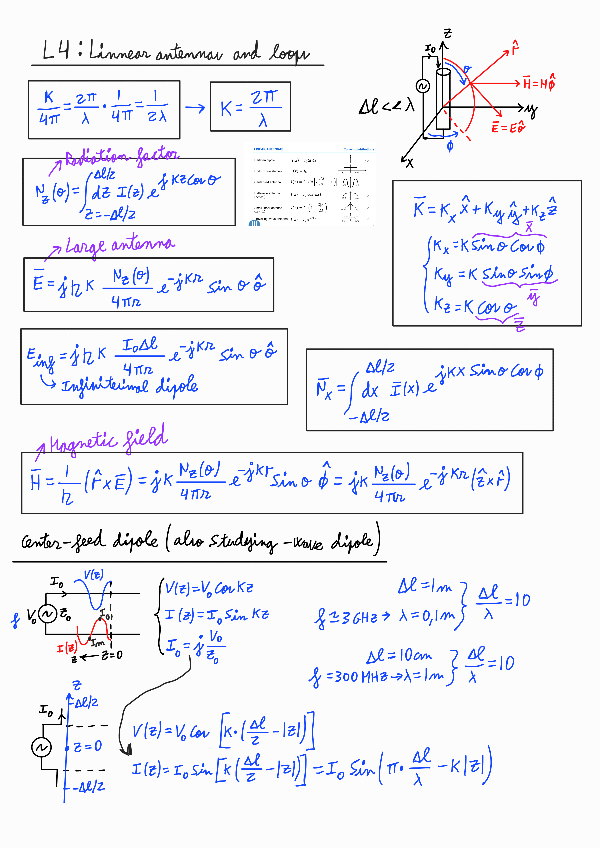 L4: Linnear antennas and loops
K/4π = 2π/λ · 1/4π = 1/2λ → K = 2π/λ
z
I₀
θ
r̂
H̄=Hφ̂
Δl<<λ
y
Ē=Eθ̂
φ
x
Radiation factor
N_z(θ) = ∫_{z=-Δl/2}^{Δl/2} dz I(z) e^{jKz cos θ}
K̄ = K_x x̂ + K_y ŷ + K_z ẑ
K_x = K sin θ cos φ
x̄
K_y = K sin θ sin φ
ȳ
K_z = K cos θ
z̄
Large antenna
Ē = jηK N_z(θ)/4πr e^{-jKr} sin θ θ̂
E_inf = jηK I₀Δl/4πr e^{-jKr} sin θ θ̂
↳ Infinitesimal dipole
N̄_x = ∫_{-Δl/2}^{Δl/2} dx Ī(x) e^{jKx sin θ cos φ}
Magnetic field
H̄ = 1/η (r̂ x Ē) = jK N_z(θ)/4πr e^{-jKr} sin θ φ̂ = jK N_z(θ)/4πr e^{-jKr} (ẑ x r̂)
Center-feed dipole (also studying -wave dipole)
I₀
V(z)
f V₀ Z₀ I₀
I(z) I_m
z ← z=0
V(z) = V₀ cos Kz
I(z) = I₀ sin Kz
I₀ = j V₀/Z₀
Δl = 1m
f ≃ 3GHz → λ = 0,1m
Δl/λ = 10
Δl = 10cm
f = 300MHz → λ = 1m
Δl/λ = 10
z
I₀
-Δl/2
z=0
-Δl/2
V(z) = V₀ cos [K·(Δl/2 - |z|)]
I(z) = I₀ sin [K(Δl/2 - |z|)] = I₀ sin (π·Δl/λ - K|z|)